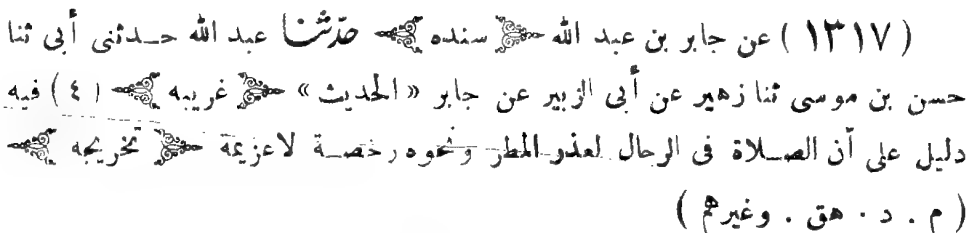 ( ١٣١٧ ) عن جابر بن عبد الله ﴿ سنده ﴾ حدّثنا عبد الله حدثنى أبى ثنا
حسن بن موسى ثنا زهير عن أبى الزبير عن جابر « الحديث » ﴿ غريبه ﴾ ( ٤ ) فيه
دليل على أن الصلاة فى الرحال لعذر المطر ونحوه رخصة لاعزيمة ﴿ تخريجه ﴾
( م . د . هق . وغيرهم )